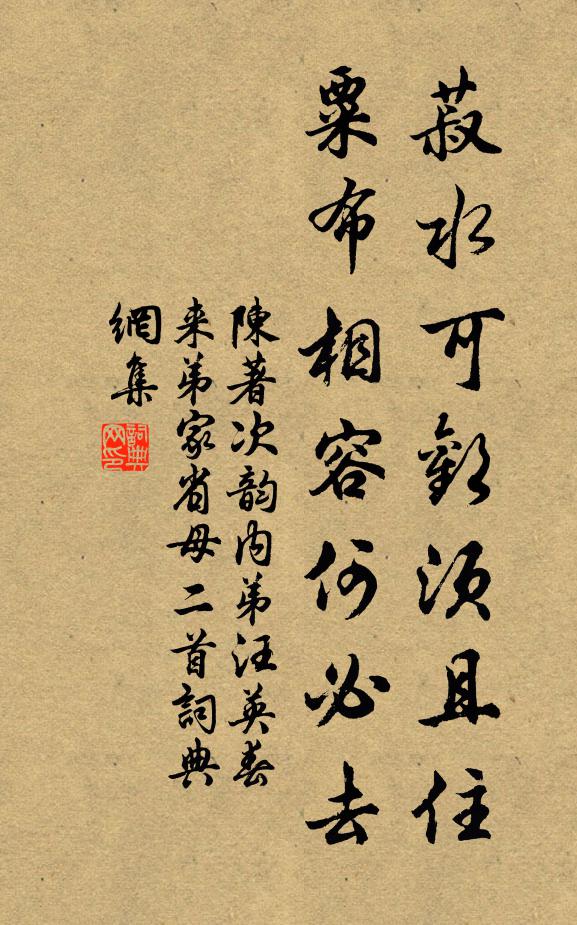 菽水可歡須且住
粟布相容何必去
陳著次韵内弟汪英春
来弟家省母二首詞典
網集
詞典
网印